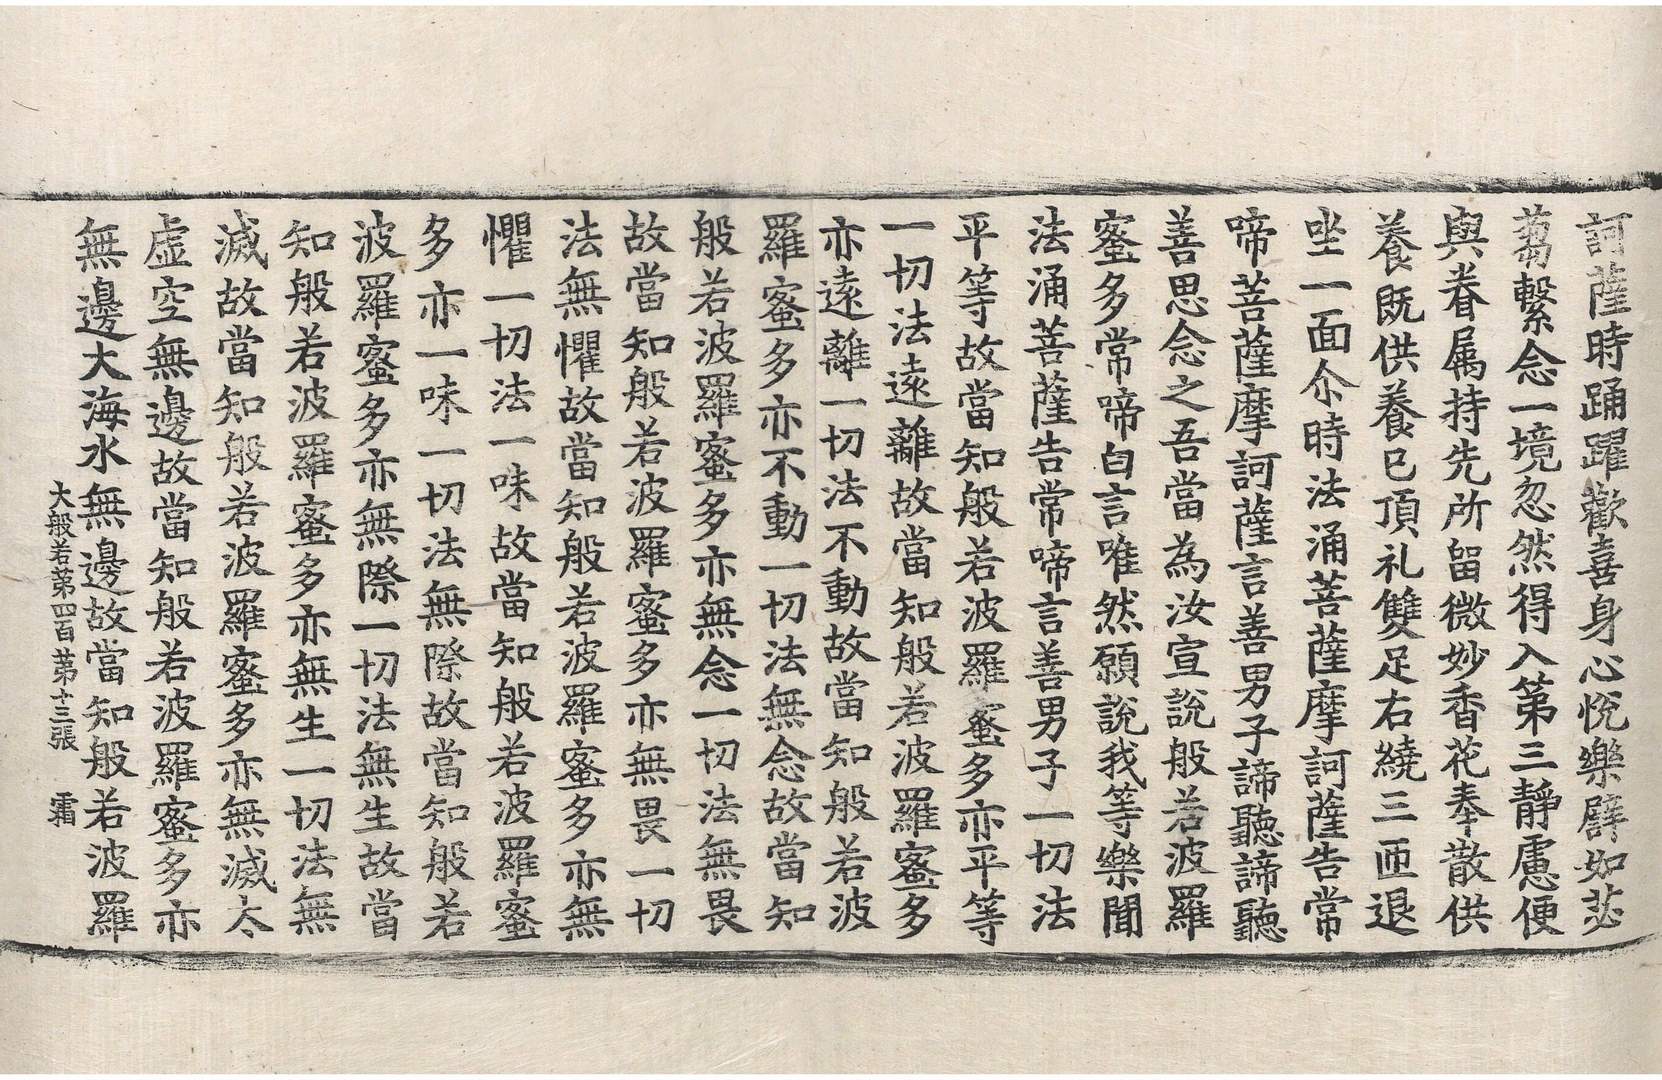 訶薩時踊躍歡喜身心悅樂辟如苾
蒭繫念一境忽然得入第三靜慮便
與眷属持先所留微妙香花奉散供
養既供養已頂礼雙足右繞三匝退
坐一面尒時法涌菩薩摩訶薩告常
啼菩薩摩訶薩言善男子諦聽諦聽
善思念之吾當為汝宣說般若波羅
蜜多常啼白言唯然願說我等樂聞
法涌菩薩告常啼言善男子一切法
平等故當知般若波羅蜜多亦平等
一切法遠離故當知般若波羅蜜多
亦遠離一切法不動故當知般若波
羅蜜多亦不動一切法無念故當知
般若波羅蜜多亦無念一切法無畏
故當知般若波羅蜜多亦無畏一切
法無懼故當知般若波羅蜜多亦無
懼一切法一味故當知般若波羅蜜
多亦一味一切法無際故當知般若
波羅蜜多亦無際一切法無生故當
知般若波羅蜜多亦無生一切法無
滅故當知般若波羅蜜多亦無滅太
虚空無邊故當知般若波羅蜜多亦
無邊大海水無邊故當知般若波羅
大般若第四百 第十三張 霜